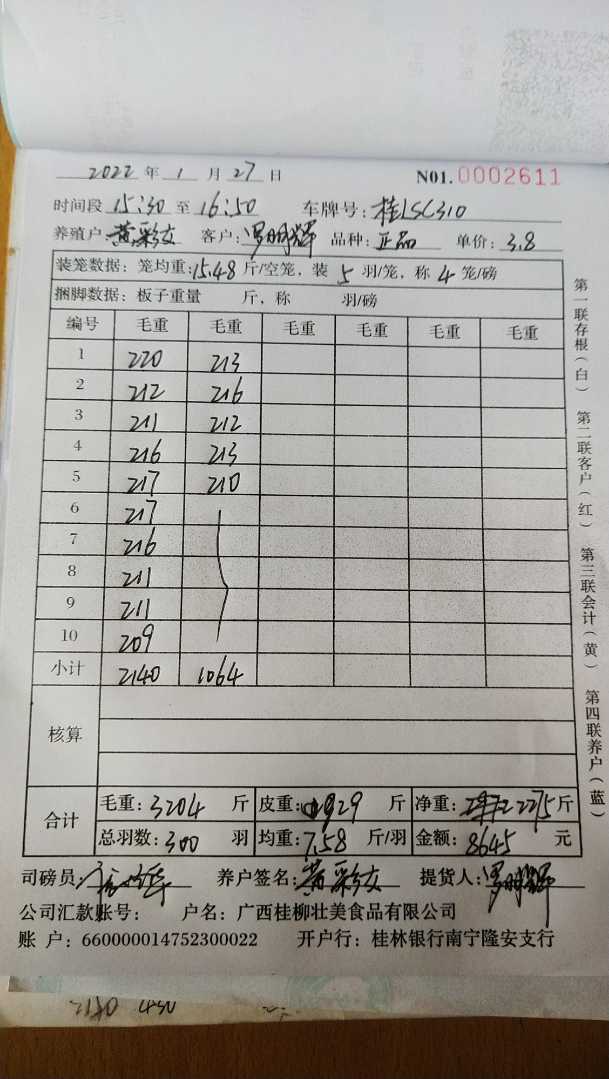 2022 年 1 月 27 日 N01.0002611
时间段 15:30 至 16:50 车牌号:桂LSC310
养殖户:黄彩文 客户:罗明辉 品种:正品 单价:3.8
装笼数据:笼均重:15.48 斤/空笼，装 5 羽/笼，称 4 笼/磅
捆脚数据:板子重量 斤，称 羽/磅
编号 毛重 毛重 毛重 毛重 毛重 毛重
1 220 213
2 212 216
3 211 212
4 216 213
5 217 210
6 217
7 216
8 211
9 211
10 209
小计 2140 1064
核算
合计
毛重:3204 斤 皮重:929 斤 净重:2275 斤
总羽数:300 羽 均重:7.58 斤/羽 金额:8645 元
司磅员: 养户签名:黄彩文 提货人:罗明辉
公司汇款账号: 户名:广西桂柳壮美食品有限公司
账 户:660000014752300022 开户行:桂林银行南宁隆安支行
第一联存根(白) 第二联客户(红) 第三联会计(黄) 第四联养户(蓝)